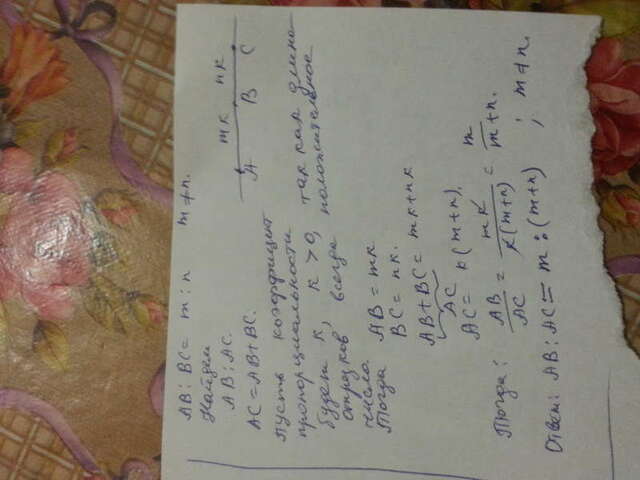 AB : BC = m : n m ≠ n.
Найдем
AB : AC.
AC = AB + BC.
mк nк
A B C
Пусть коэффициент
пропорциональности
будет к, к > 0, так как длина
отрезков всегда положительное
число.
Тогда AB = mк
BC = nк.
AB + BC = mк + nк
AC
AC = к (m+n),
Тогда: AB/AC = mк/к(m+n) = m/m+n.
Ответ: AB : AC = m : (m+n) ; m ≠ n.